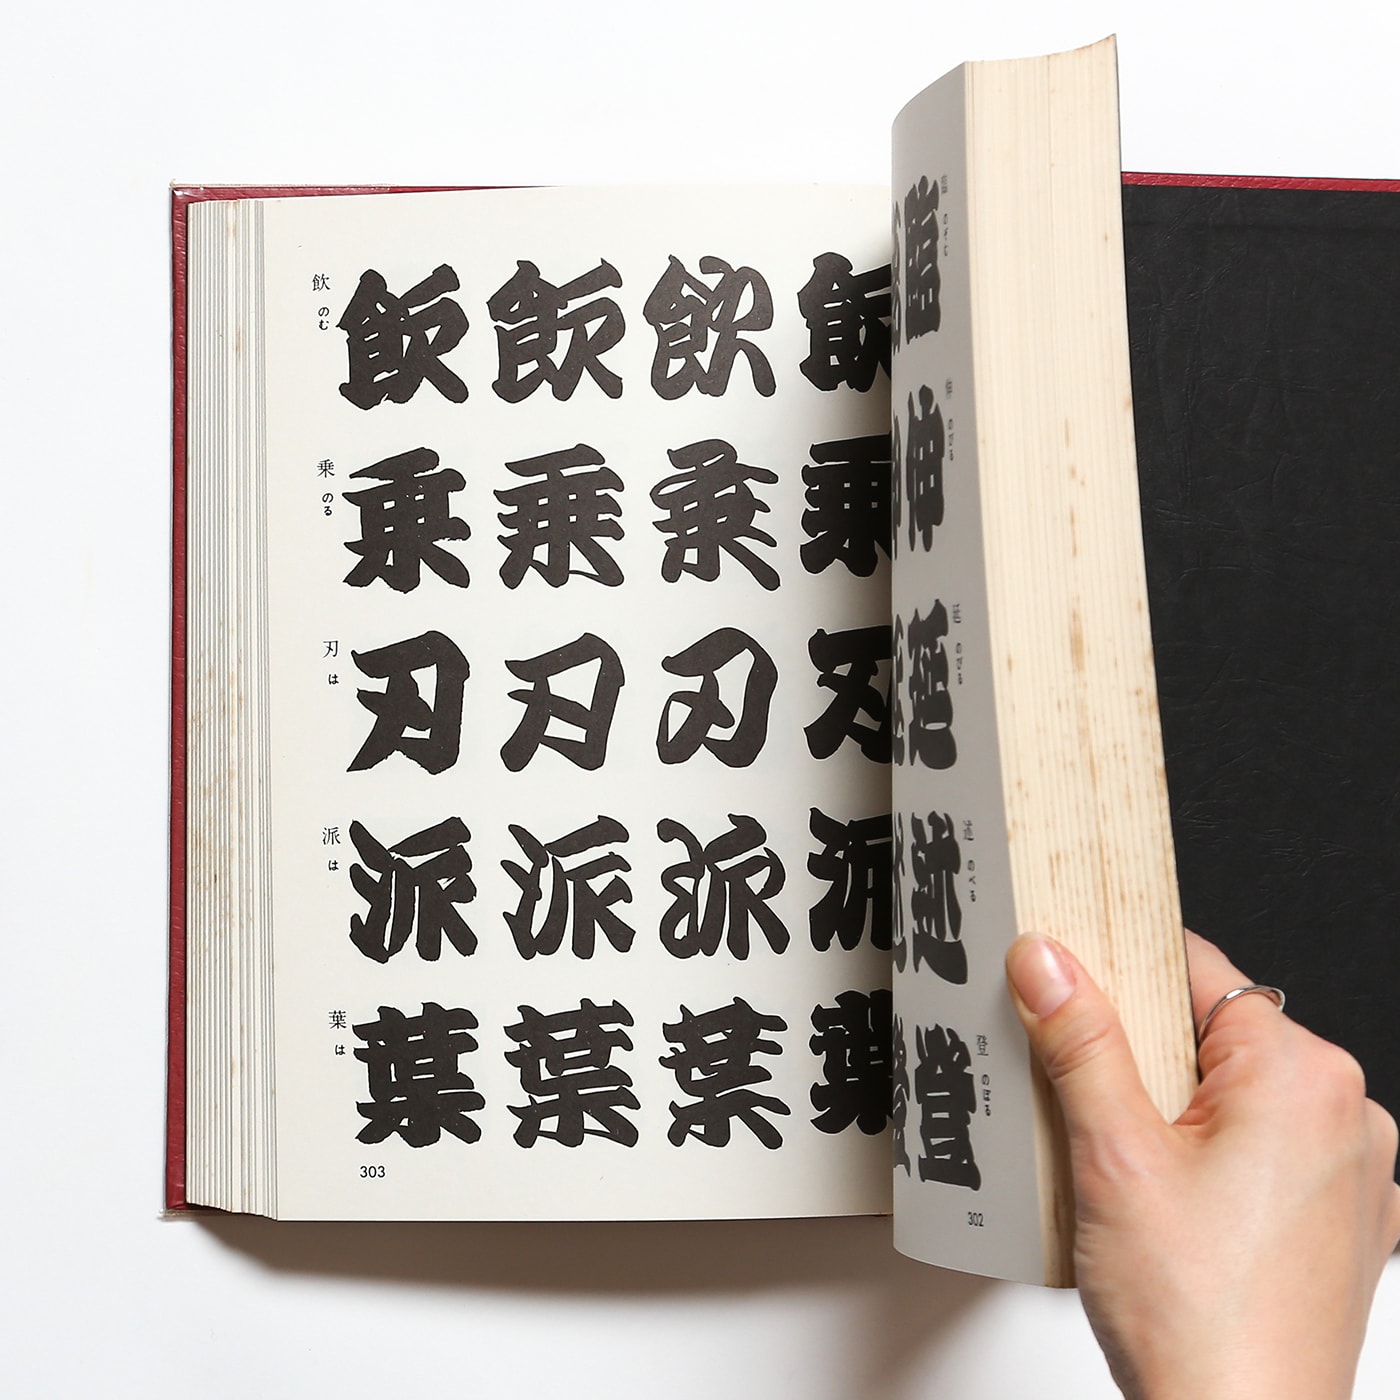 飲 のむ
飲 飲 飲 飲
乗 のる
乗 乗 乗 乗
刃 は
刃 刃 刃 刃
派 は
派 派 派 派
葉 は
葉 葉 葉 葉
303
臨 のぞむ
臨
伸 のびる
伸
延 のびる
延
述 のべる
述
登 のぼる
登
302